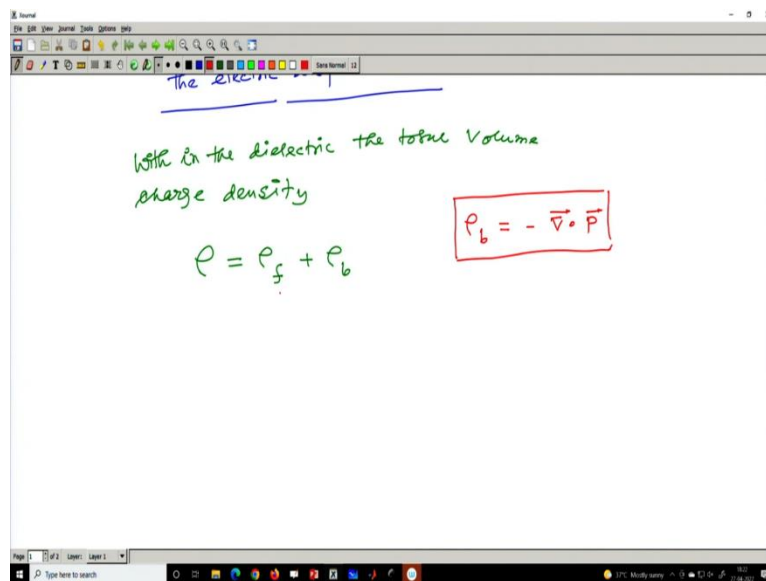 Journal
File Edit View Journal Tools Options Help
Sans Normal 12
The electric
With in the dielectric the total volume
charge density
ρ_b = - ∇⃗ • P⃗
ρ = ρ_f + ρ_b
Page 1 of 2 Layer: Layer 1
Type here to search
37°C Mostly sunny
18:22
27-04-2021